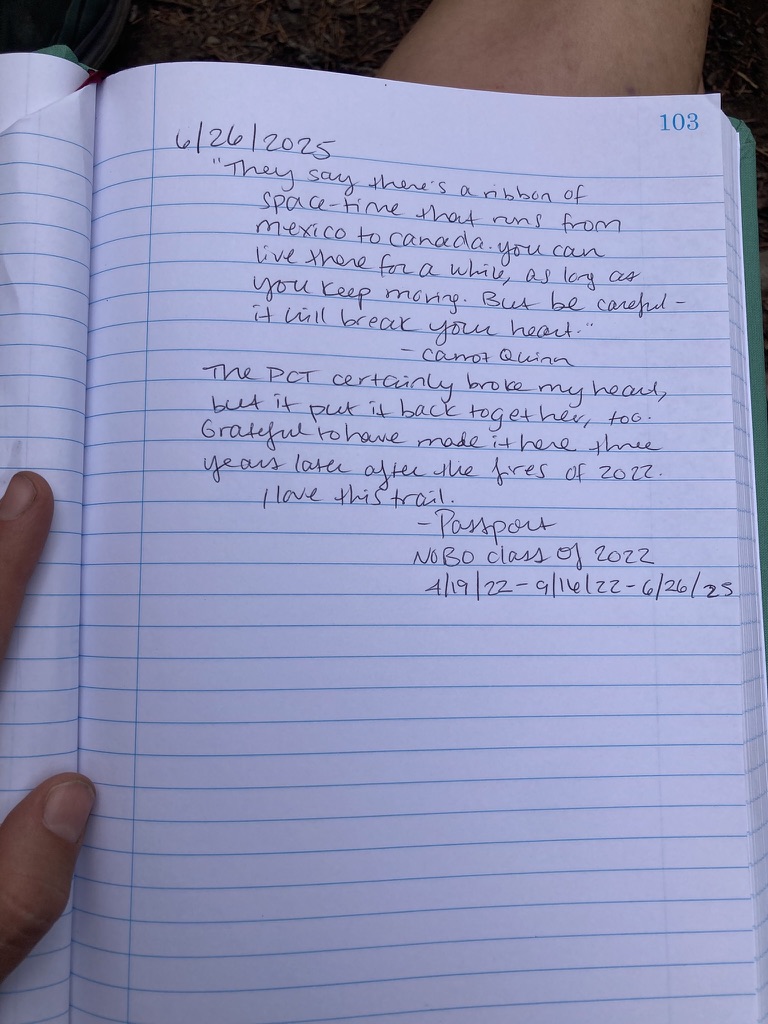 103
6/26/2025
"They say there's a ribbon of
space-time that runs from
mexico to canada. you can
live there for a while, as long as
you keep moving. But be careful -
it will break your heart."
- Carrot Quinn
The PCT certainly broke my heart,
but it put it back together, too.
Grateful to have made it here three
years later after the fires of 2022.
I love this trail.
- Passport
NOBO class of 2022
4/19/22 - 9/16/22 - 6/26/25